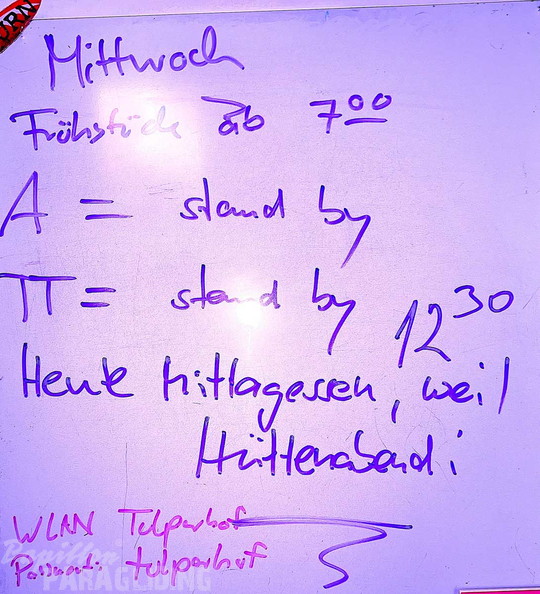 Mittwoch
Frühstück ab 7 00
A = stand by
π = stand by 12 30
Heute Mittagessen, weil
Hüttenabend!
WLAN Tulperhof
Passwort: tulperhof
PARAGLIDING
ÖRN